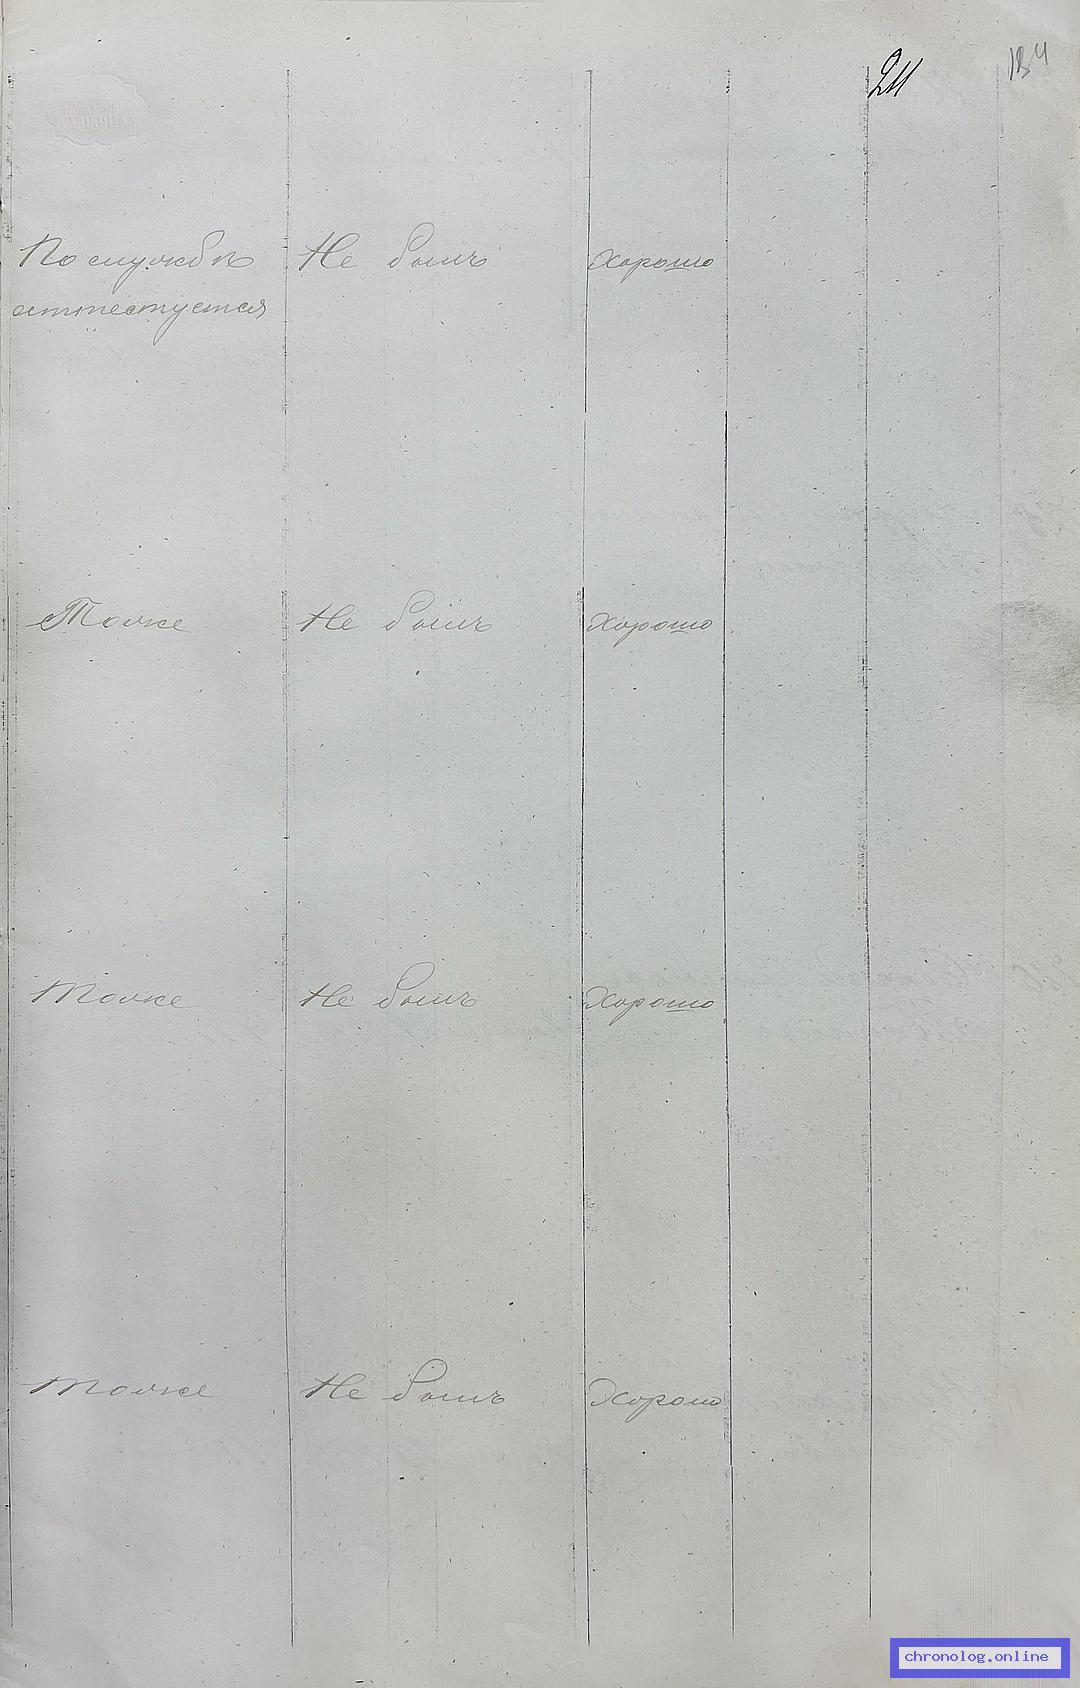 211 134
По службѣ Не былъ Хорошо
аттестуется
Тоже Не былъ Хорошо
Тоже Не былъ Хорошо
Тоже Не былъ Хорошо
chronolog.online